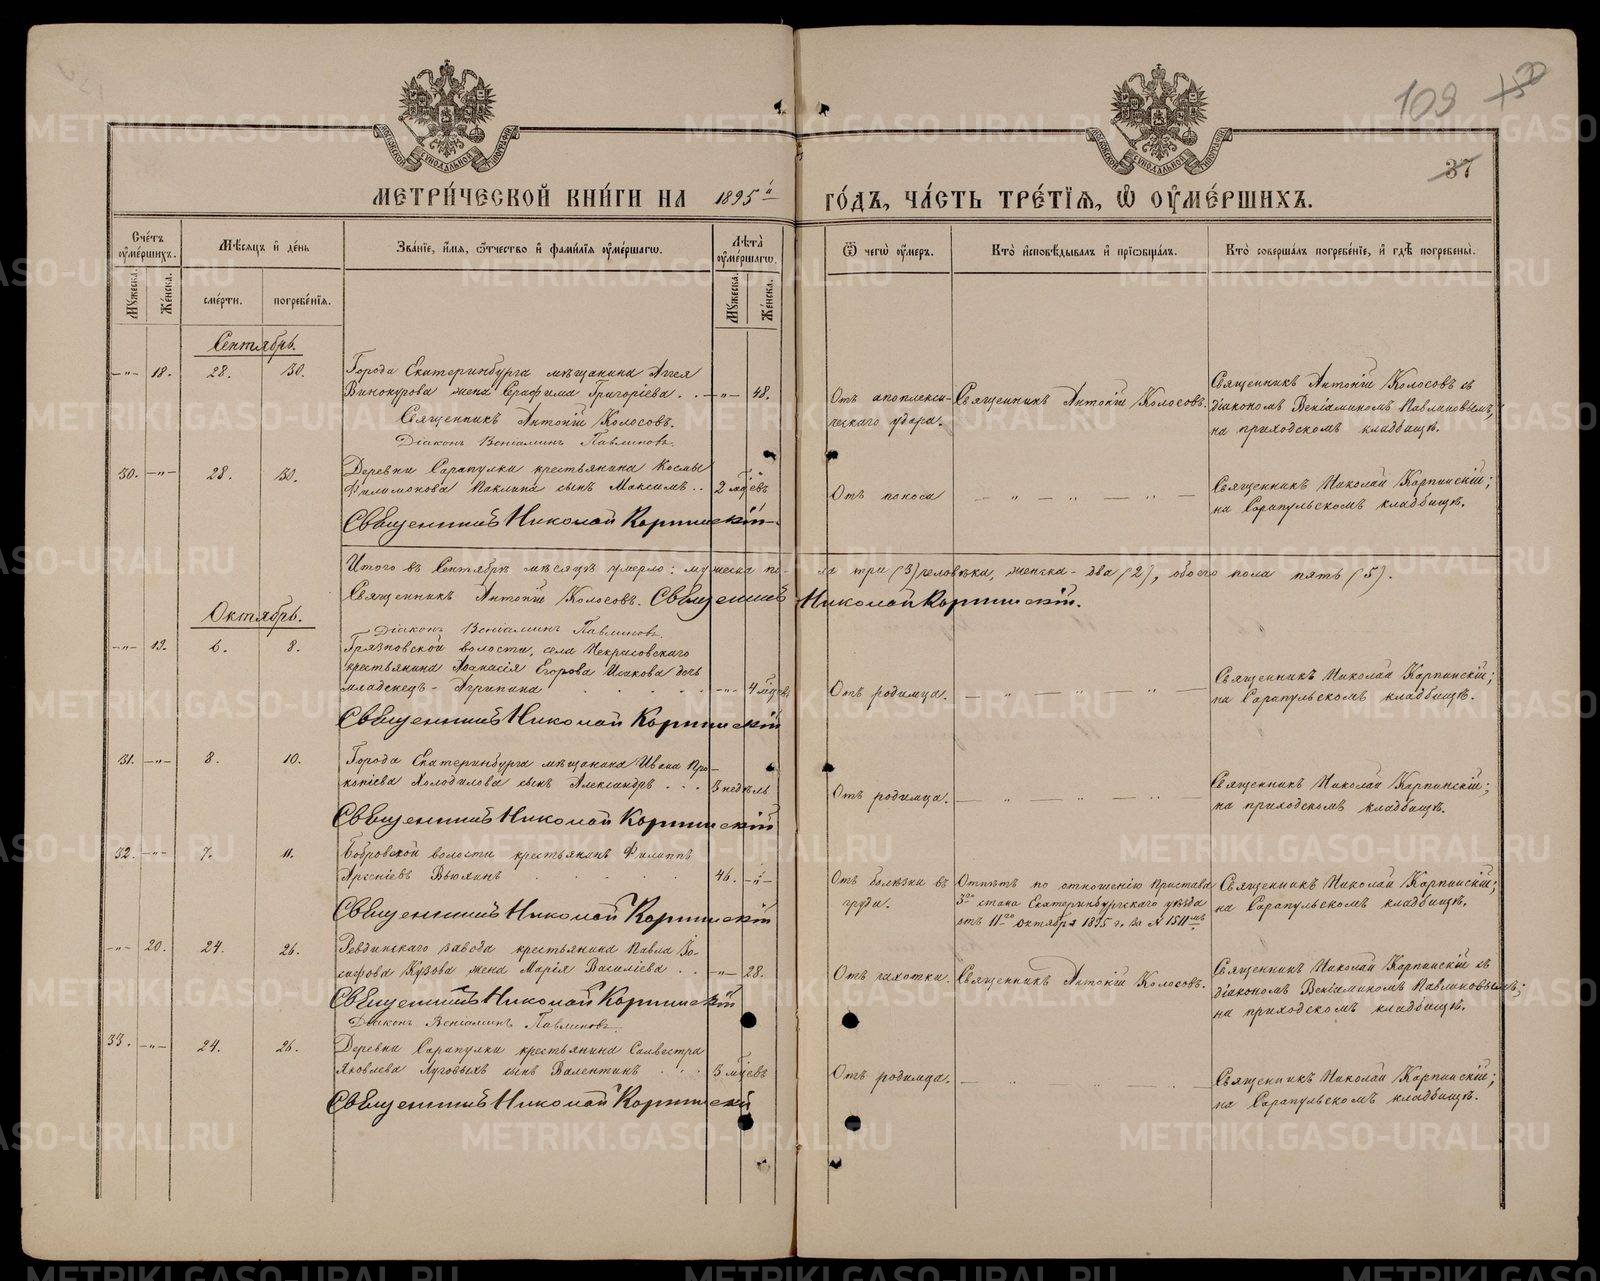 109
37
МЕТРИ́ЧЕСКОЙ КНИ́ГИ НА 1895й ГО́ДЪ, ЧА́СТЬ ТРЕ́ТІѦ, Ѡ ОУМЕ́РШИХЪ.
Сче́тъ оуме́ршихъ.
Мѣ́сяцъ и де́нь
Зва́ніе, и́мя, о́тчество и фами́лія оуме́ршаго.
Лѣ́та оуме́ршаго.
Ѿ чегѡ̀ оу́меръ.
Кто̀ исповѣ́дывалъ и пріобща́лъ.
Кто̀ соверша́лъ погребе́ніе, и гдѣ̀ погребены̀.
Мꙋ́жеска.
Же́нска.
сме́рти.
погребе́нія.
Мꙋ́жеска.
Же́нска.
Сентябрь.
-"- 18. 28. 30. Города Екатеринбурга мѣщанина Аггея
Винокурова жена Серафима Григоріева . . -"- 48.
Священникъ Антоній Колосовъ.
Діаконъ Веніаминъ Павлиновъ.
Отъ апоплекси-
ческаго удара.
Священникъ Антоній Колосовъ.
Священникъ Антоній Колосовъ съ
діакономъ Веніаминомъ Павлиновымъ;
на приходскомъ кладбищѣ.
30. -"- 28. 30. Деревни Сарапулки крестьянина Космы
Филимонова Паклина сынъ Максимъ . . 2 мцевъ
Священникъ Николай Карпинскій
Отъ поноса — " — " — " —
Священникъ Николай Карпинскій;
на Сарапульскомъ кладбищѣ.
Итого въ Сентябрѣ мѣсяцѣ умерло: мужеска по-ла три (3) человѣка, женска - два (2), обоего пола пять (5).
Священникъ Антоній Колосовъ. Священникъ Николай Карпинскій.
Діаконъ Веніаминъ Павлиновъ.
Октябрь.
-"- 19. 6. 8. Грязновской волости, села Некрасовскаго
крестьянина Аѳанасія Егорова Исакова дочь
младенецъ - Агрипина . . . . -"- 4 мцев.
Священникъ Николай Карпинскій
Отъ родимца. — " — " — " —
Священникъ Николай Карпинскій;
на Сарапульскомъ кладбищѣ.
31. -"- 8. 10. Города Екатеринбурга мѣщанина Ивана Про-
копіева Холодилова сынъ Александръ . . . 3 недѣль
Священникъ Николай Карпинскій
Отъ родимца. — " — " — " —
Священникъ Николай Карпинскій;
на приходскомъ кладбищѣ.
32. -"- 7. 11. Бобровской волости крестьянинъ Филиппъ
Арсеніевъ Вьюхинъ . . . 46. -"-
Священникъ Николай Карпинскій
Отъ болѣзни въ
груди.
Отпѣтъ по отношенію Пристава
3го стана Екатеринбургскаго уѣзда
отъ 11го октября 1895 г. за № 1511мъ
Священникъ Николай Карпинскій;
на Сарапульскомъ кладбищѣ.
-"- 20. 24. 26. Ревдинскаго завода крестьянина Павла Іо-
сифова Кузова жена Марія Василіева . . -"- 28.
Священникъ Николай Карпинскій
Діаконъ Веніаминъ Павлиновъ.
Отъ чахотки.
Священникъ Антоній Колосовъ.
Священникъ Николай Карпинскій съ
діакономъ Веніаминомъ Павлиновымъ;
на приходскомъ кладбищѣ.
33. -"- 24. 26. Деревни Сарапулки крестьянина Силвестра
Яковлева Луговыхъ сынъ Валентинъ . . . 3 мцевъ
Священникъ Николай Карпинскій
Отъ родимца. — " — " —
Священникъ Николай Карпинскій;
на Сарапульскомъ кладбищѣ.
METRIKI.GASO-URAL.RU